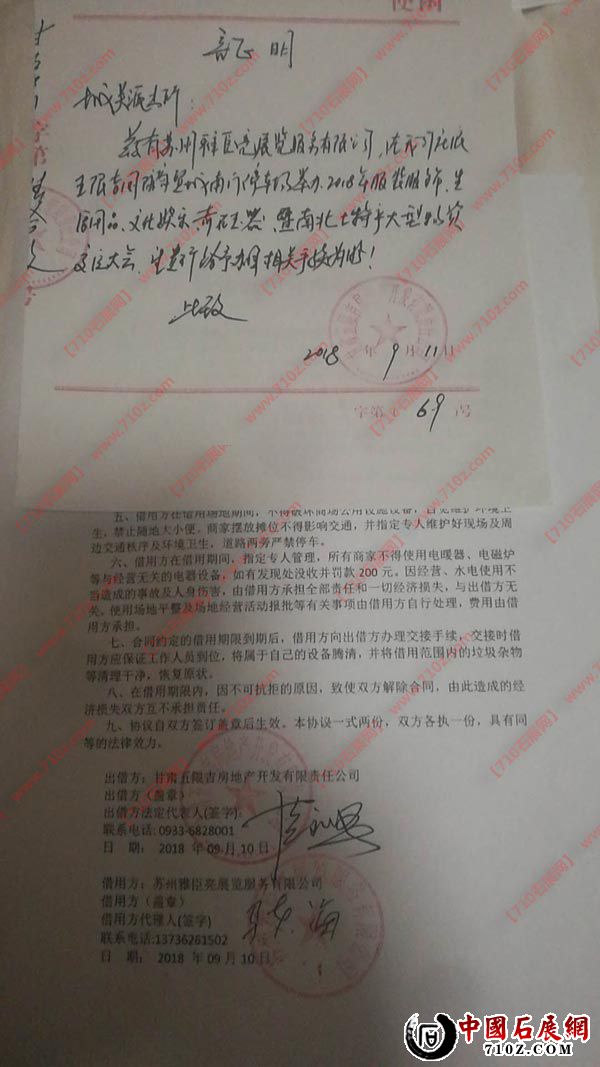 便函
证明
城关派出所：
兹有苏州雅臣亮展览服务有限公司，
2018年服装服饰、生
活用品、文化娱乐、奇石玉器、暨南北土特产大型物资
交流大会、
此致
2018年9月11日
字第 69 号
五、借用方在借用场地期间，不得破坏商场公用设施设备，自觉维护环境卫
生，禁止随地大小便。商家摆放摊位不得影响交通，并指定专人维护好现场及周
边交通秩序及环境卫生，道路两旁严禁停车。
六、借用方在借用期间，指定专人管理，所有商家不得使用电暖器、电磁炉
等与经营无关的电器设备，如有发现处没收并罚款 200 元。因经营、水电使用不
当造成的事故及人身伤害，由借用方承担全部责任和一切经济损失，与出借方无
关。使用场地平整及场地经营活动报批等有关事项由借用方自行处理，费用由借
用方承担。
七、合同约定的借用期限到期后，借用方向出借方办理交接手续，交接时借
用方应保证工作人员到位，将属于自己的设备腾清，并将借用范围内的垃圾杂物
等清理干净，恢复原状。
八、在借用期限内，因不可抗拒的原因，致使双方解除合同，由此造成的经
济损失双方互不承担责任。
九、协议自双方签订盖章后生效。本协议一式两份，双方各执一份，具有同
等的法律效力。
出借方：甘肃五限吉房地产开发有限责任公司
出借方（盖章）
出借方法定代表人(签字)：
联系电话：0933-6828001
日 期： 2018 年 09 月 10 日
借用方：苏州雅臣亮展览服务有限公司
借用方（盖章）
借用方代理人(签字)
联系电话:13736281502
日 期： 2018 年 09 月 10 日
【710石展网】www.710z.com
中國石展網
710Z.COM